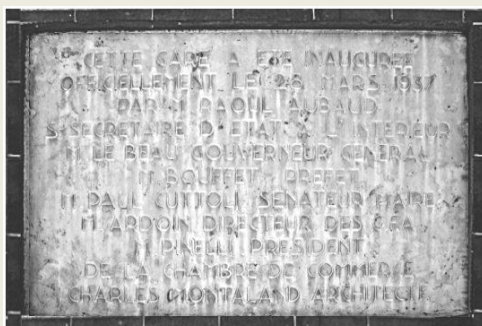 CETTE GARE A ETE INAUGUREE
OFFICIELLEMENT LE 28 MARS 1937
PAR M RAOUL AUBAUD
S. SECRETAIRE D ETAT A L INTERIEUR
M LE BEAU GOUVERNEUR GENERAL
M BOUFFET PREFET
M PAUL CUTTOLI SENATEUR MAIRE
M ARDOIN DIRECTEUR DES CFA
M PINELLI PRESIDENT
DE LA CHAMBRE DE COMMERCE
CHARLES MONTALAND ARCHITECTE